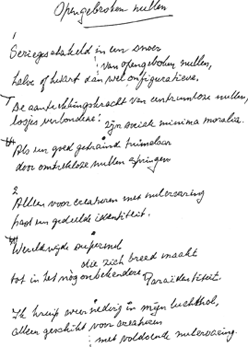 Opengebroken nullen
1
Seriegeschakeld in een snoer
van opengebroken nullen,
halve of kwart dan wel configuratieve.
De aantrekkingskracht van centrumloze nullen,
losjes verbonden: zijn sociale minima moralia.
Als een goed getrainde tuimelaar
door omtrekloze nullen springen
2
Alleen voor creaturen met nulervaring
past een gedeelde identiteit.
Wereldwijde
die zich breed maakt
tot in het nog onbekendere Paraidentiteit.
Ik kruip overnederig in mijn luchthol,
alleen geschikt voor creaturen
met voldoende nulervaring.